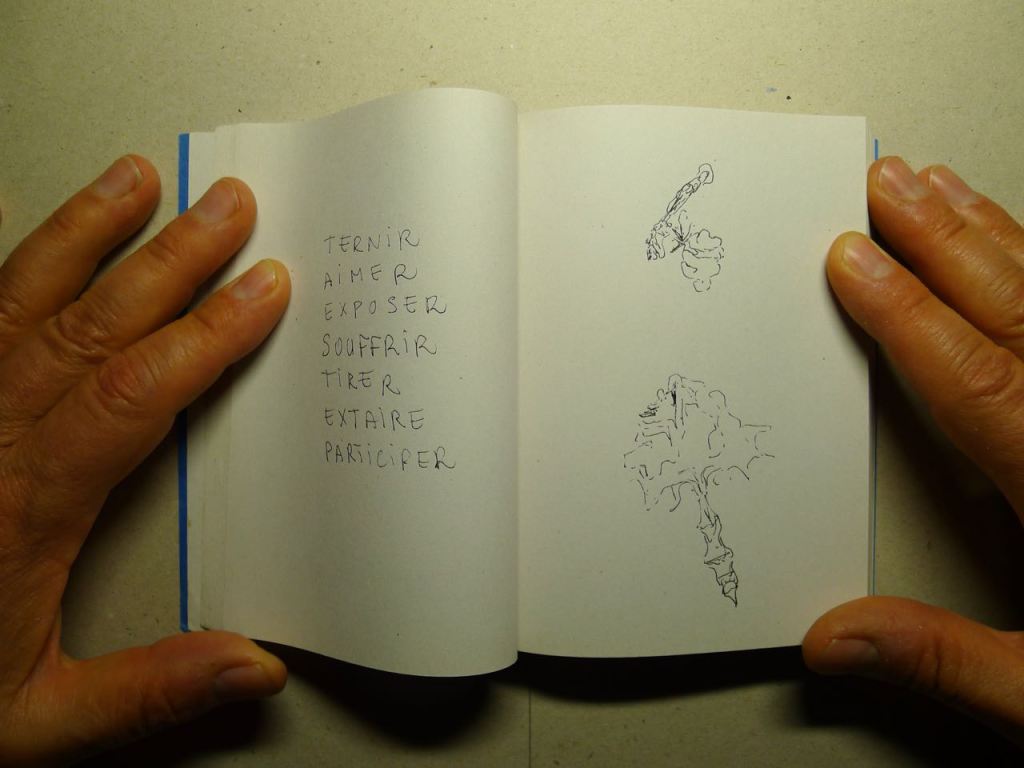 TERNIR
AIMER
EXPOSER
SOUFFRIR
TIRER
EXTAIRE
PARTICIPER